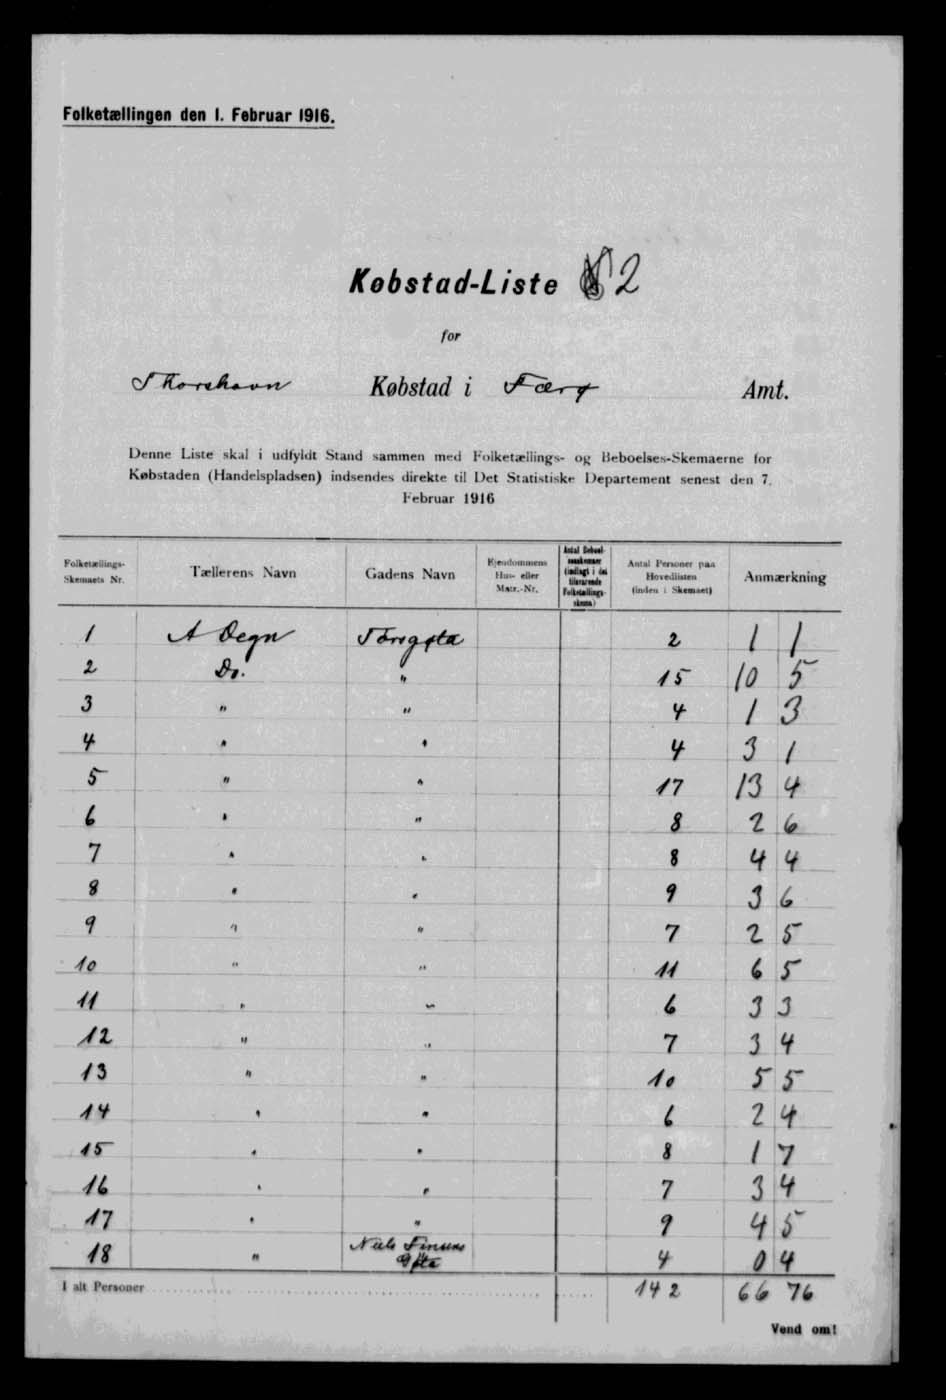 Folketællingen den 1. Februar 1916.
Købstad-Liste 2
for
Thorshavn Købstad i Færø Amt.
Denne Liste skal i udfyldt Stand sammen med Folketællings- og Beboelses-Skemaerne for
Købstaden (Handelspladsen) indsendes direkte til Det Statistiske Departement senest den 7.
Februar 1916
Folketællings-Skemaets Nr. Tællerens Navn Gadens Navn Ejendommens Hus- eller Matr.-Nr. Antal Beboelsesskemaer (indlagt i det tilsvarende Folketællingsskema) Antal Personer paa Hovedlisten (inden i Skemaet) Anmærkning
1 A Degn 2 1 1
2 Do. " 15 10 5
3 " " 4 1 3
4 " " 4 3 1
5 " " 17 13 4
6 " " 8 2 6
7 " " 8 4 4
8 " " 9 3 6
9 " " 7 2 5
10 " " 11 6 5
11 " " 6 3 3
12 " " 7 3 4
13 " " 10 5 5
14 " " 6 2 4
15 " " 8 1 7
16 " " 7 3 4
17 " " 9 4 5
18 " Niels Finsens Gøta 4 0 4
I alt Personer 142 66 76
Vend om!